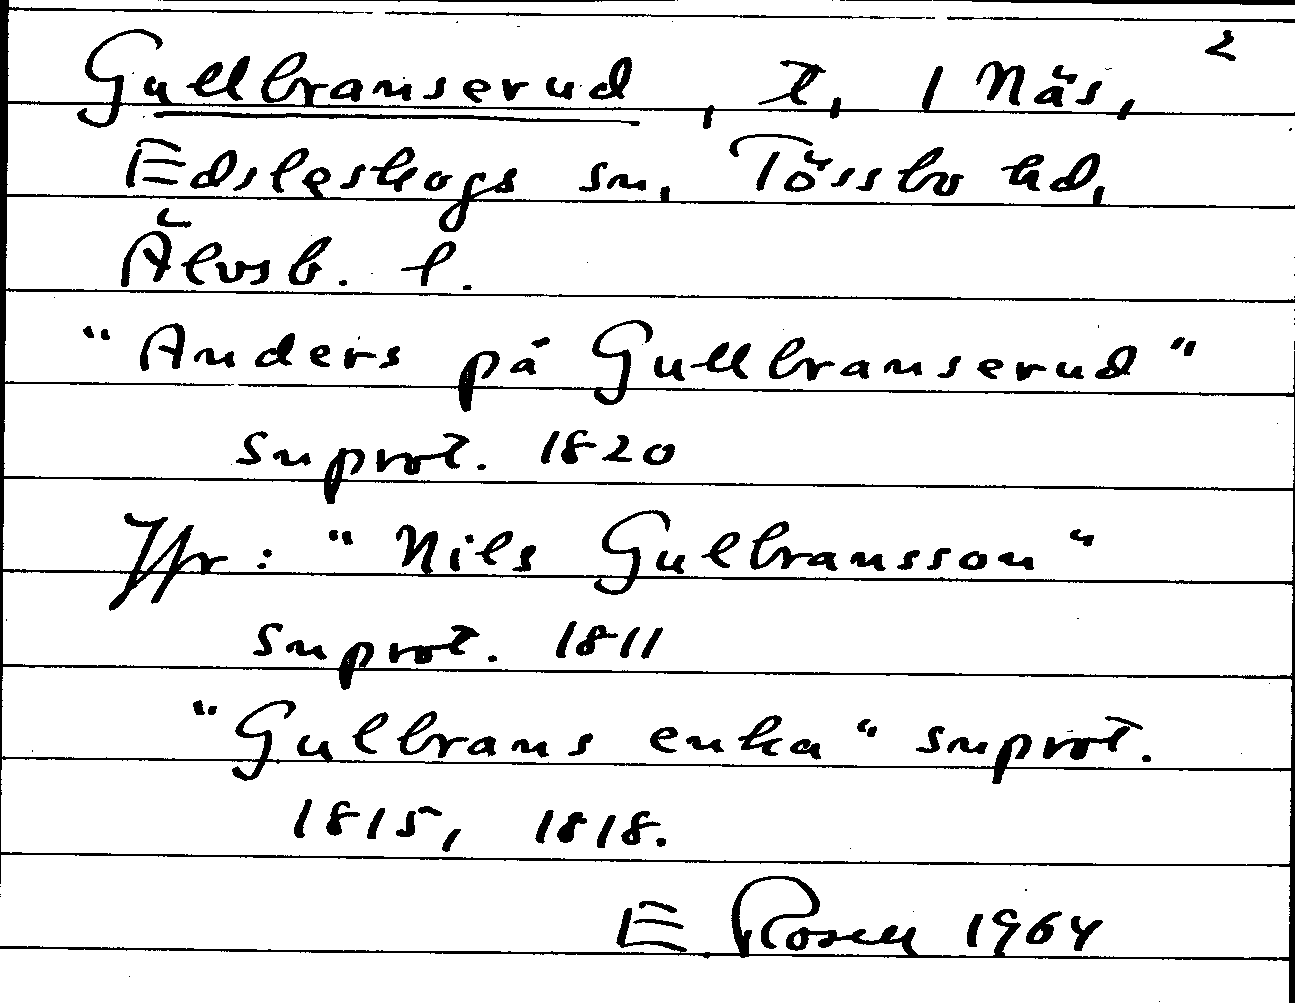 2
Gullbranserud, t, 1 Näs,
Edsleskogs sn, Tössbo hd,
Älvsb. l.
"Anders på Gullbranserud"
snprot. 1820
Jfr: "Nils Gulbransson"
snprot. 1811
"Gulbrans enka" snprot.
1815, 1818.
E. Rosen 1964